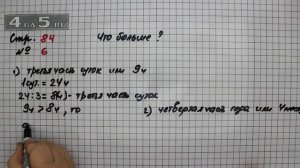 4DA5.RU
Стр. 84
Что больше?
№ 6
1) третья часть суток или 9ч
1 сут. = 24ч
24:3=8(ч)- третья часть суток
9ч > 8ч, то
2) четвертая часть года или 4 мес
9